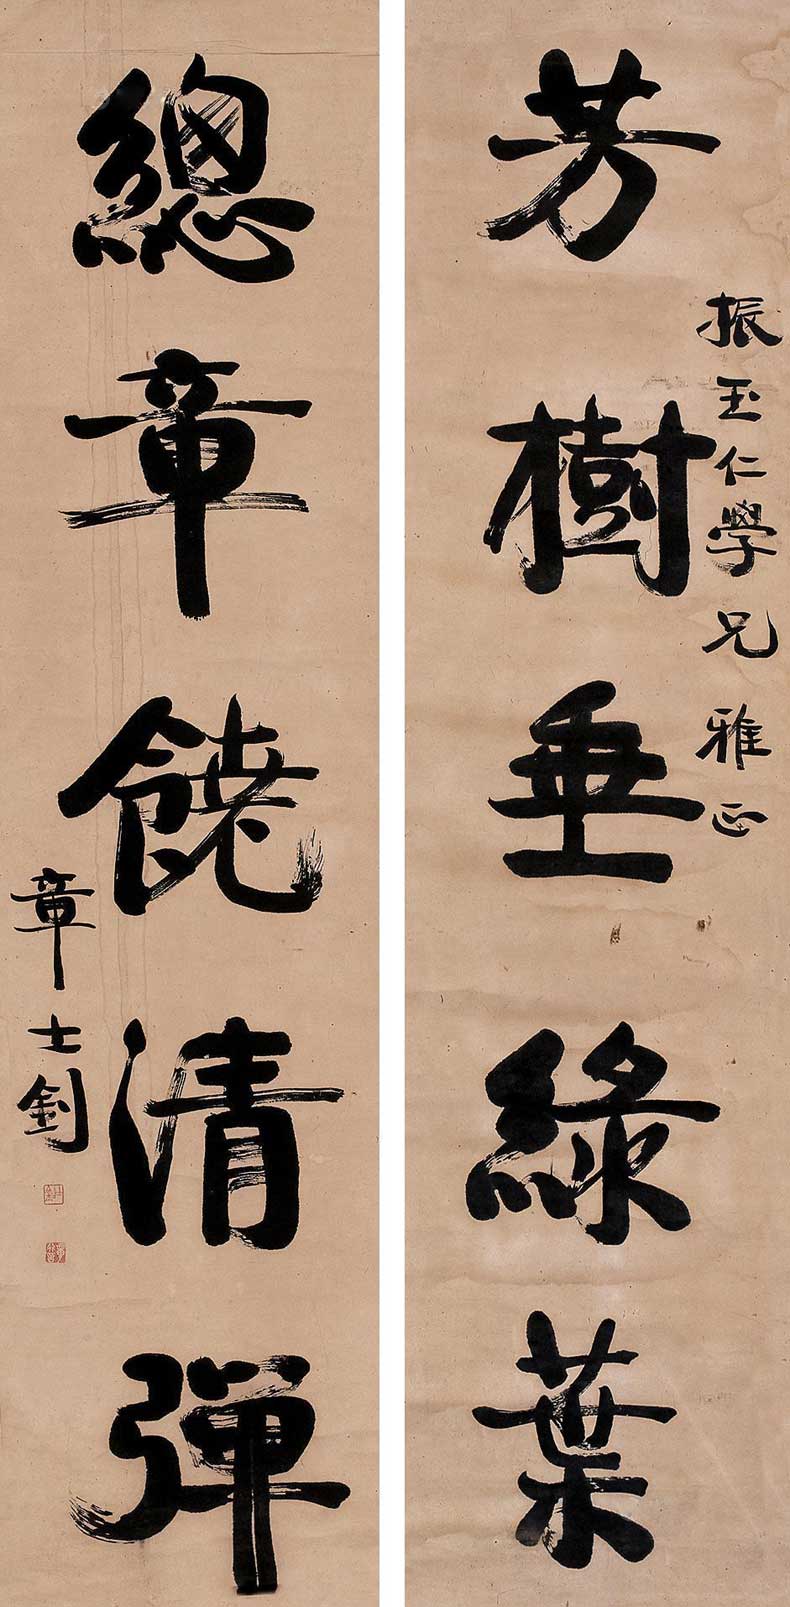 芳樹垂綠葉
振玉仁學兄 雅正
總章饒清彈
章士釗